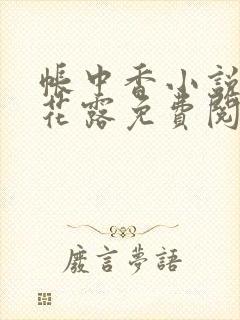 帳中香小說
花露免費閱
廢言夢語